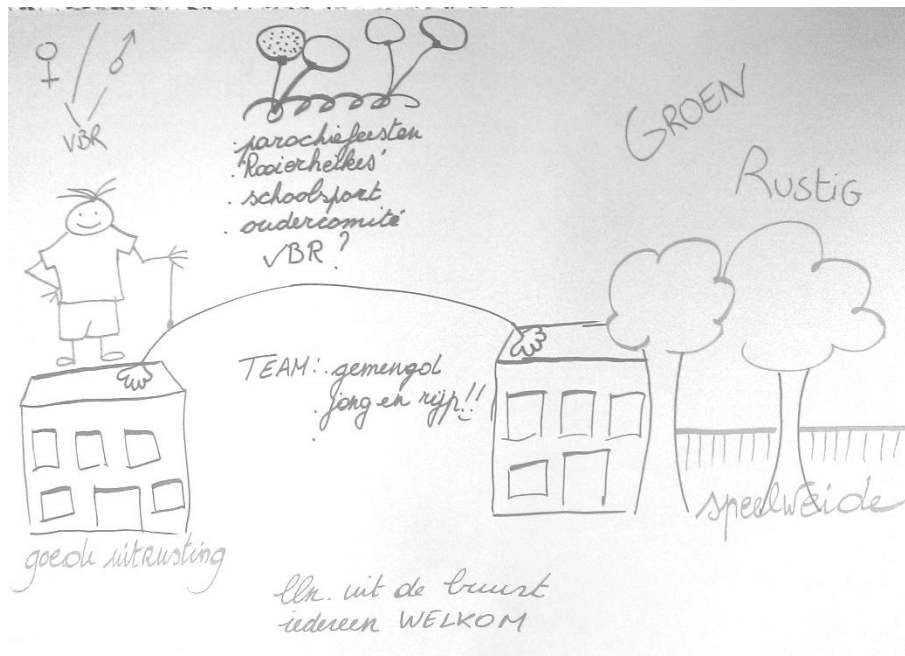 VBR
. parochiefeesten
. 'Rooierheikes'
. schoolsport
. oudercomité
VBR ?
GROEN
RUSTIG
TEAM: . gemengd
. jong en rijp!!
.
goede uitrusting
speelweide
lln. uit de buurt
iedereen WELKOM